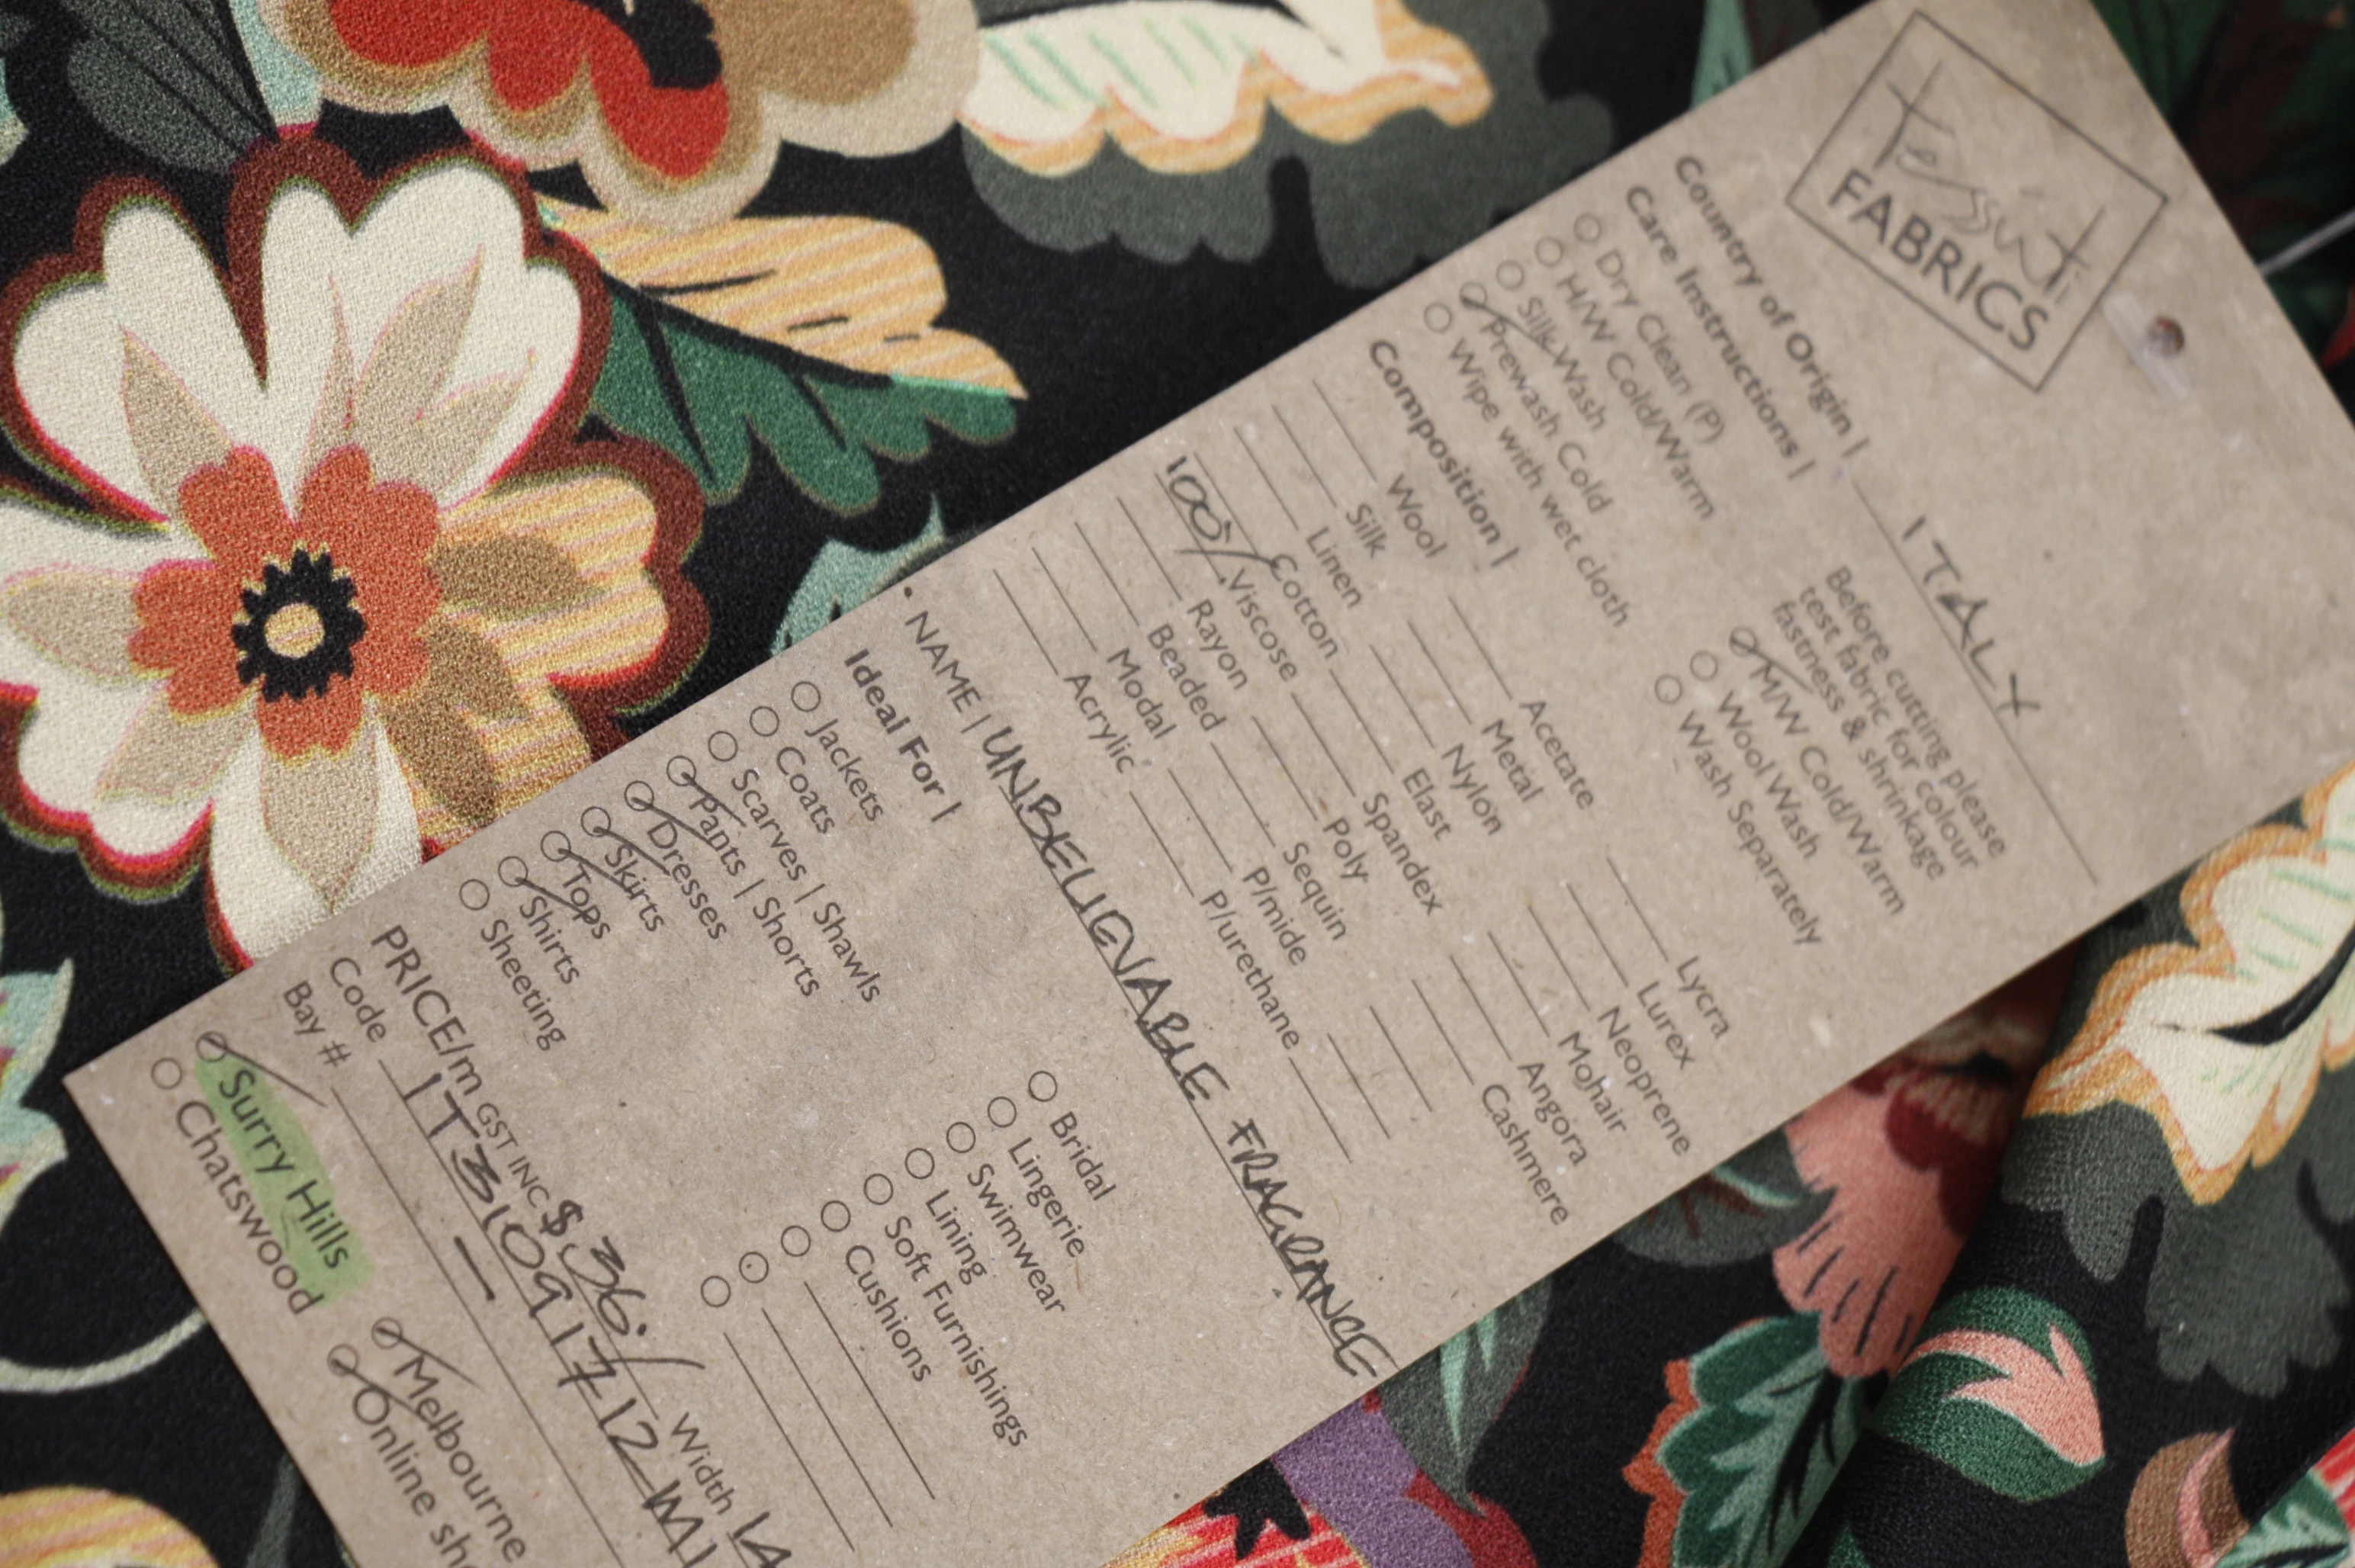 Tessuti
FABRICS
Country of Origin | ITALY
Care Instructions |
Before cutting please
test fabric for colour
fastness & shrinkage
Dry Clean (P)
H/W Cold/Warm
Silk Wash
Prewash Cold
Wipe with wet cloth
M/W Cold/Warm
Wool Wash
Wash Separately
Composition |
Wool Acetate Lycra
Silk Metal Lurex
Linen Nylon Neoprene
Cotton Elast Mohair
100% Viscose Spandex Angora
Rayon Poly Cashmere
Beaded Sequin
Modal P/mide
Acrylic P/urethane
• NAME | UNBELIEVABLE FRAGRANCE
Ideal For |
Jackets
Coats
Scarves | Shawls
Pants | Shorts
Dresses
Skirts
Tops
Shirts
Sheeting
Bridal
Lingerie
Swimwear
Lining
Soft Furnishings
Cushions
PRICE/m GST INC $36./ Width
Code IT3109 1712
Bay # —
Surry Hills
Chatswood
Melbourne
Online